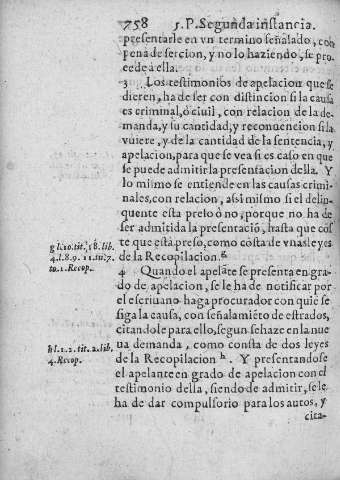 758 5. P. Segunda instancia.
presentarle en vn termino señalado, con
pena de sercion, y no lo haziendo, se pro
cede a ella.
3 Los testimonios de apelacion que se
dieren, ha de ser con distincion si la causa
es criminal, ò ciuil, con relacion de la de-
manda, y su cantidad, y reconuencion si la
vuiere, y de la cantidad de la sentencia, y
apelacion, para que se vea si es caso en que
se puede admitir la presentacion della. Y
lo mismo se entiende en las causas crimi-
nales, con relacion, assi mismo si el delin-
quente esta preso ò no, porque no ha de
ser admitida la presentació, hasta que cós
te que està preso, como cósta de vnas leyes
de la Recopilacion. g
g l. 10. tit. 18. lib.
4. l. 8. 9. 11. tit. 7.
to. 1. Recop.
4 Quando el apelãte se presenta en gra
do de apelacion, se le ha de notificar por
el escriuano haga procurador con quié se
siga la causa, con señalamiéto de estrados,
citandole para ello, segun se haze en la nue
ua demanda, como consta de dos leyes
de la Recopilacion h. Y presentandose
el apelante en grado de apelacion con el
testimonio della, siendo de admitir, se le
ha de dar compulsorio para los autos, y
h l. 1. 2. tit. 2. lib.
4. Recop.
cita-